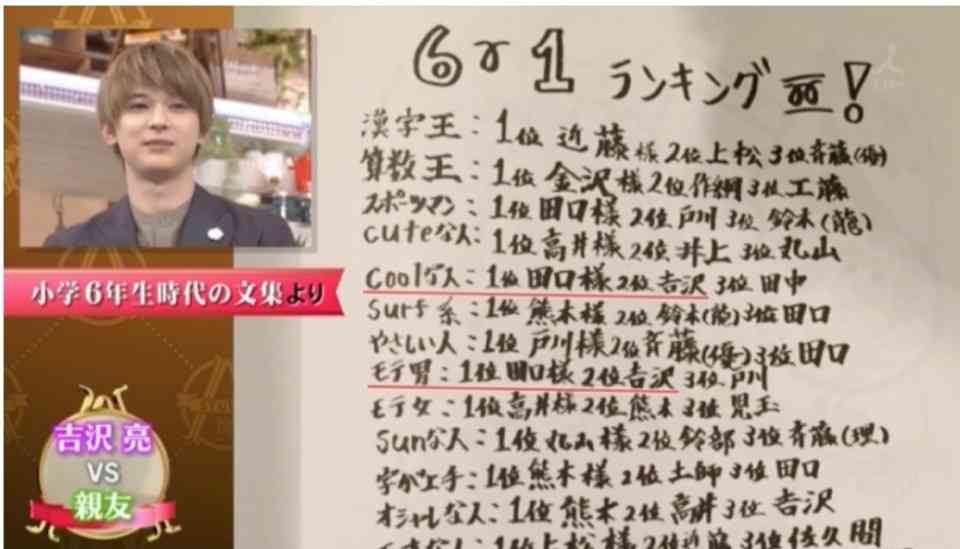 6の1 ランキング!!
漢字王:1位 近藤様 2位上松 3位斉藤(優)
算数王:1位 金沢様 2位作綱 3位工藤
スポーツマン:1位田口様 2位戸川 3位鈴木(龍)
cuteな人:1位高井様 2位井上 3位丸山
coolな人:1位田口様 2位吉沢 3位田中
surf系:1位熊木様 2位鈴木(龍) 3位田口
やさしい人:1位戸川様 2位斉藤(優) 3位田口
モテ男:1位田口様 2位吉沢 3位戸川
モテ女:1位高井様 2位熊木 3位児玉
sunな人:1位丸山様 2位鈴部 3位斉藤(理)
字が上手:1位熊木様 2位土師 3位田口
オシャレな人:1位熊木 2位高井 3位吉沢
1位上松様 2位近藤 3位佐久間
小学6年生時代の文集より
吉沢 亮
VS
親友